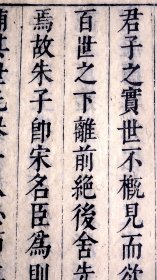 君子之實世不槪見而欲
百世之下離前絕後舍先
焉故朱子卽宋名臣為則